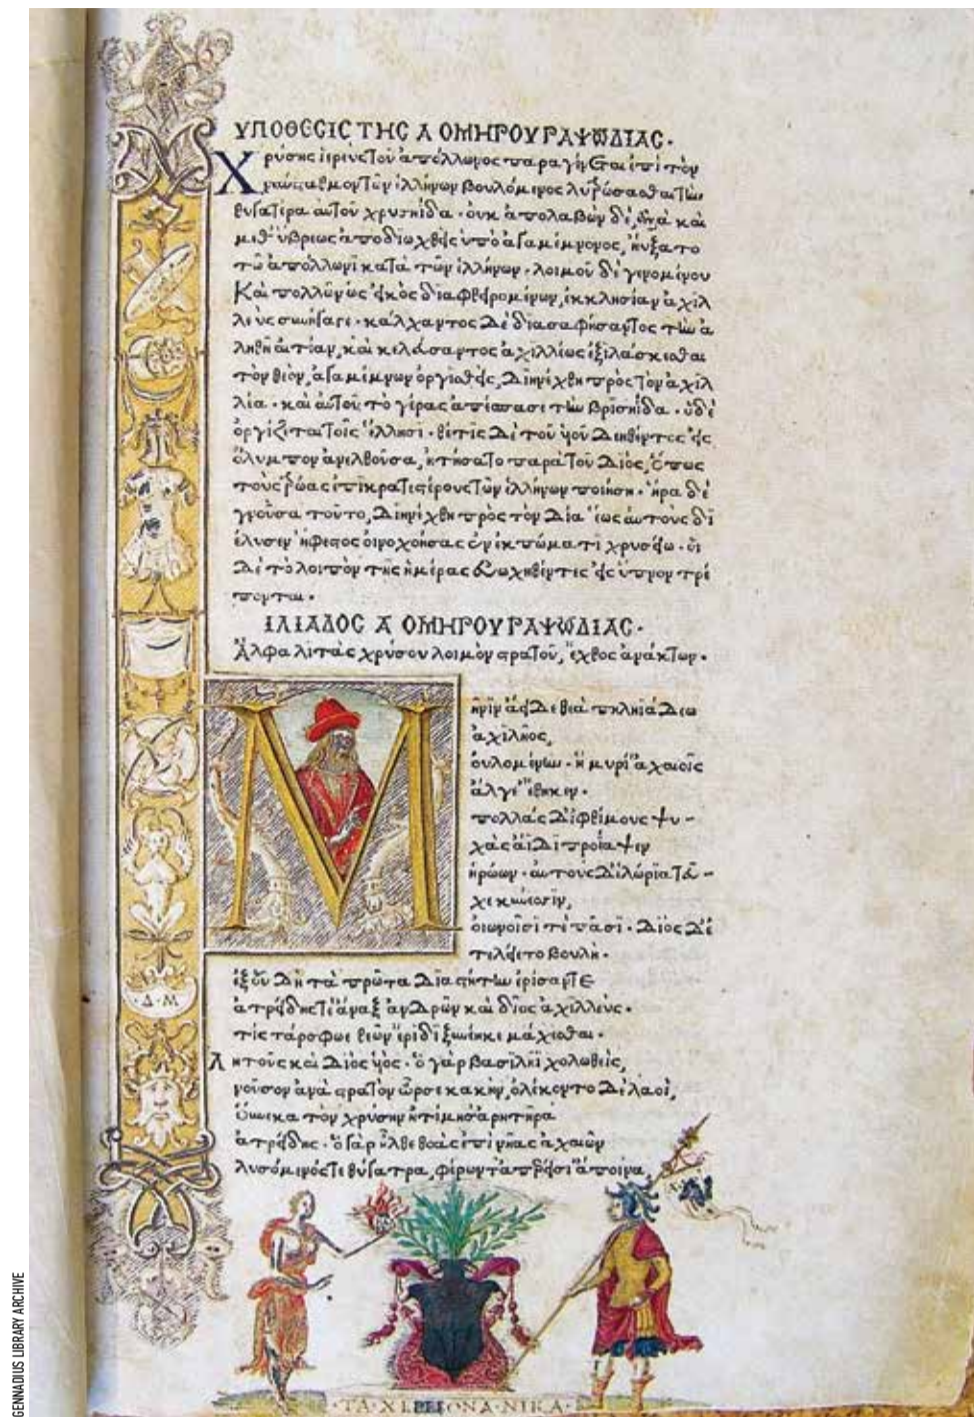 GENNADIUS LIBRARY ARCHIVE
ΥΠΟΘΕCΙC ΤΗC Α ΟΜΗΡΟΥ ΡΑΨΩΔΙΑC·
Χρύσης ἱερεὺς τοῦ ἀπόλλωνος παραγίνεται ἐπὶ τὸν
ναύσταθμον τῶν ἑλλήνων βουλόμενος λυτρώσασθαι τὴν
θυγατέρα αὐτοῦ χρυσηίδα· οὐκ ἀπολαβὼν δέ, καὶ
μεθ' ὕβρεως ἀποδιωχθεὶς ὑπὸ ἀγαμέμνονος, ηὔξατο
τῶ ἀπόλλωνι κατὰ τῶν ἑλλήνων· λοιμοῦ δὲ γενομένου
Καὶ πολλῶν ὡς εἰκὸς διαφθειρομένων, ἐκκλησίαν ἀχιλ
λεὺς συνήγαγε· κάλχαντος δὲ διασαφήσαντος τὴν ἀ
ληθῆ αἰτίαν, καὶ κελεύσαντος ἀχιλλέως ἐξιλάσκεσθαι
τὸν θεὸν, ἀγαμέμνων ὀργισθεὶς, διηνέχθη πρὸς τὸν ἀχιλ
λέα· καὶ αὐτοῦ τὸ γέρας ἀπέσπασε τὴν βρισηίδα· ὁ δὲ
ὀργίζεται τοῖς ἕλλησι· θέτις δὲ τοῦ υἱοῦ δεηθέντος εἰς
ὄλυμπον ἀνελθοῦσα, ἠτήσατο παρὰ τοῦ Διὸς, ὅπως
τοὺς τρῶας ἐπικρατεστέρους τῶν ἑλλήνων ποιήση· ἥρα δὲ
γνοῦσα τοῦτο, διηνέχθη πρὸς τὸν Δία ἕως αὐτοὺς δι
έλυσεν ἥφαιστος οἰνοχοήσας ἐν ἐκπώματι χρυσείω· οἱ
δὲ τὸ λοιπὸν τῆς ἡμέρας εὐωχηθέντες εἰς ὕπνον τρέ
πονται·
ΙΛΙΑΔΟC Α ΟΜΗΡΟΥ ΡΑΨΩΔΙΑC·
Ἄλφα λιτὰς χρύσου λοιμὸν στρατοῦ, ἔχθος ἀνάκτων·
Μῆνιν ἄειδε θεὰ πηληϊάδεω
ἀχιλῆος,
οὐλομένην· ἣ μυρί' ἀχαιοῖς
ἄλγε' ἔθηκεν·
πολλὰς δ' ἰφθίμους ψυ-
χὰς ἄϊδι προΐαψεν
ἡρώων· αὐτοὺς δ' ἑλώρια τεῦ-
χε κύνεσσιν,
οἰωνοῖσί τε πᾶσι· Διὸς δ' ἐ
τελείετο βουλή·
ἐξ οὗ δὴ τὰ πρῶτα διαστήτην ἐρίσαντε
ἀτρείδης τε ἄναξ ἀνδρῶν καὶ δῖος ἀχιλλεύς·
τίς τάρ σφωε θεῶν ἔριδι ξυνέηκε μάχεσθαι·
Λητοῦς καὶ Διὸς υἱός· ὁ γὰρ βασιλῆϊ χολωθεὶς,
νοῦσον ἀνὰ στρατὸν ὦρσε κακὴν, ὀλέκοντο δὲ λαοί,
Οὕνεκα τὸν χρύσην ἠτίμησ' ἀρητῆρα
ἀτρείδης· ὁ γὰρ ἦλθε θοὰς ἐπὶ νῆας ἀχαιῶν
λυσόμενός τε θύγατρα, φέρων τ' ἀπερείσι' ἄποινα,
·Δ·Μ